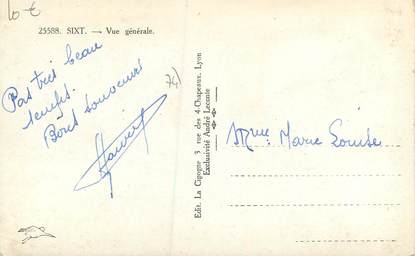 10 €
25588. SIXT. — Vue générale.
Pas très beau
temps.
Bons souvenirs
74)
Edit. La Cigogne 3 rue des 4-Chapeaux. Lyon
Exclusivité André Leconte
Mme Marie Louise